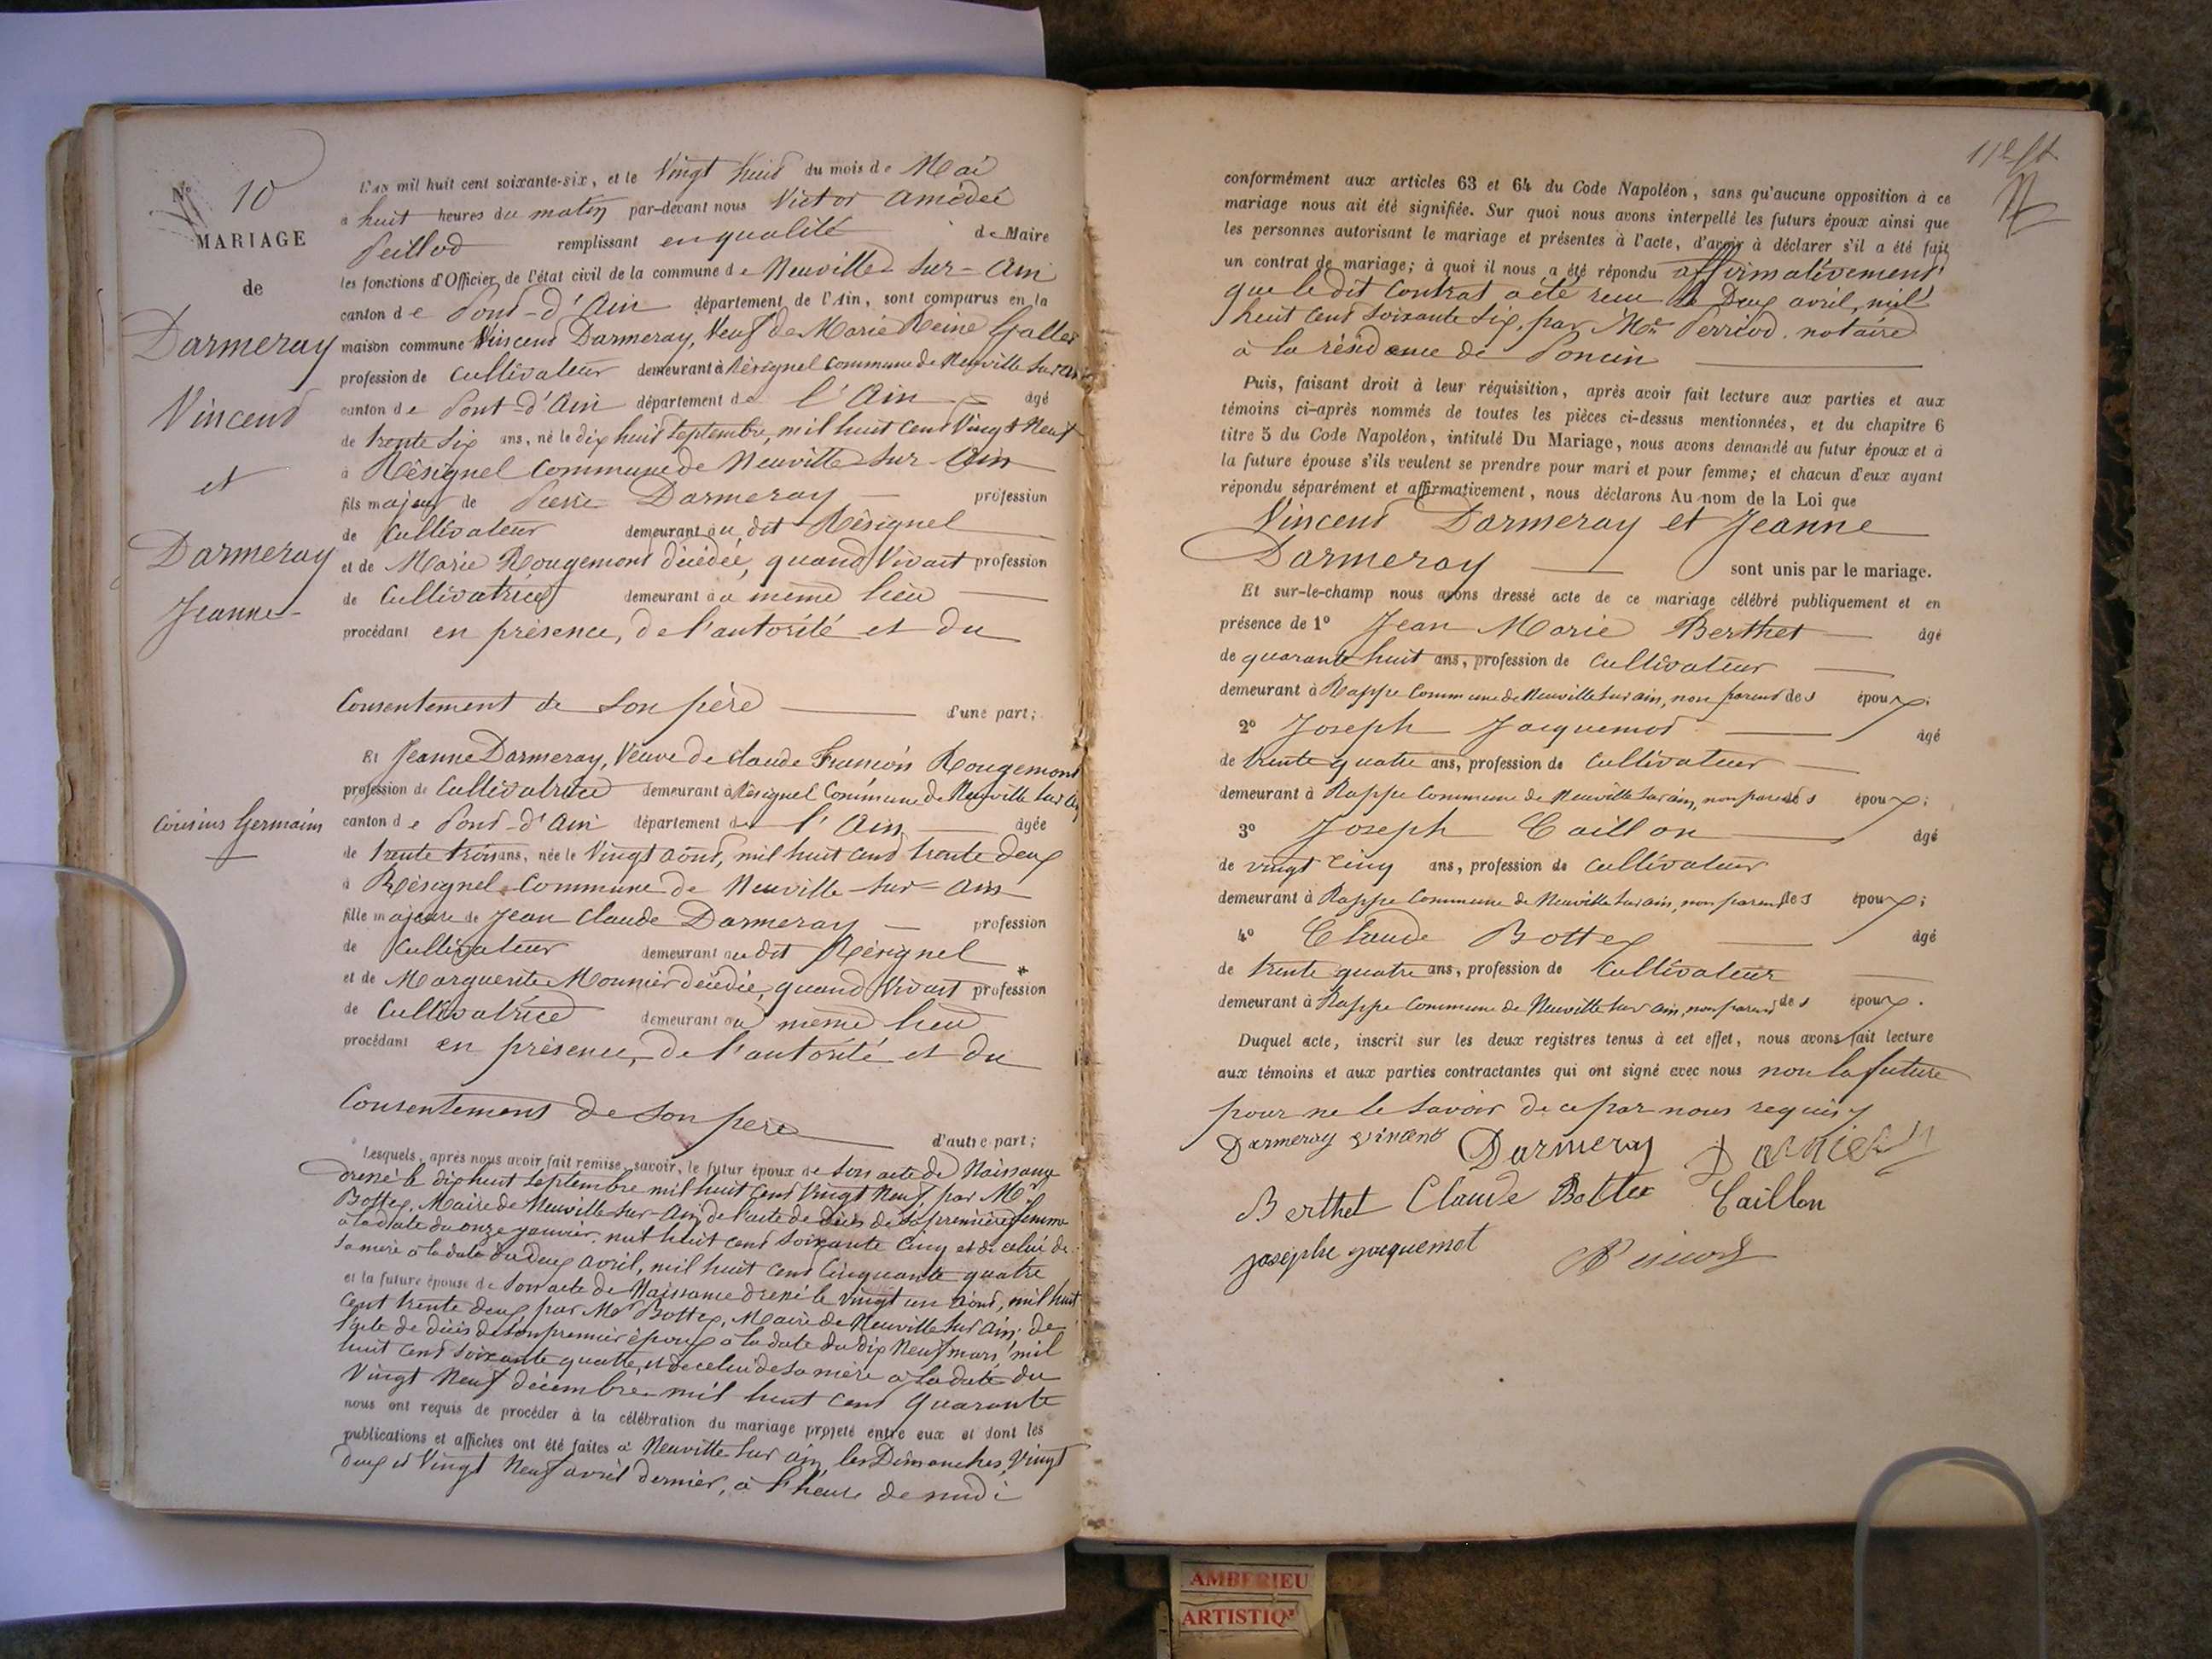 N° 10
MARIAGE
de
Darmeray
Vincent
et
Darmeray
Jeanne
Cousins Germains
L'an mil huit cent soixante-six, et le Vingt huit du mois de Mai
à huit heures du matin par-devant nous Victor Amédée
Peillod remplissant en qualité de Maire
les fonctions d'Officier de l'état civil de la commune de Neuville sur-Ain
canton de Pont-d'Ain département de l'Ain, sont comparus en la
maison commune Vincent Darmeray, Veuf de Marie Reine Gallet
profession de Cultivateur demeurant à Résignel Commune de Neuville sur Ain
canton de Pont-d'Ain département de l'Ain âgé
de trente six ans, né le dix huit septembre, mil huit cent Vingt Neuf
à Résignel Commune de Neuville sur-Ain
fils majeur de Pierre Darmeray profession
de Cultivateur demeurant au dit Résignel
et de Marie Rougemont décédée, quand Vivait profession
de Cultivatrice demeurant au même lieu
procédant en présence, de l'autorité et du
Consentement de son père d'une part;
Et Jeanne Darmeray, Veuve de Claude François Rougemont
profession de Cultivatrice demeurant à Résignel Commune de Neuville sur Ain
canton de Pont-d'Ain département de l'Ain âgée
de trente trois ans, née le Vingt août, mil huit cent trente deux
à Résignel Commune de Neuville sur-Ain
fille majeure de Jean Claude Darmeray profession
de Cultivateur demeurant au dit Résignel
et de Marguerite Mounier décédée, quand Vivait profession
de Cultivatrice demeurant au même lieu
procédant en présence, de l'autorité et du
Consentement de son père d'autre part;
Lesquels, après nous avoir fait remise, savoir, le futur époux de son acte de Naissance
dressé le dix huit septembre mil huit cent Vingt Neuf, par Mr
Bottex, Maire de Neuville sur-Ain, de l'acte de décès de sa première femme
à la date du onze janvier, mil huit cent soixante cinq et de celui de
sa mère à la date du deux avril, mil huit cent Cinquante quatre
et la future épouse de son acte de Naissance dressé le vingt un août, mil huit
cent trente deux par Mr Bottex, Maire de Neuville sur Ain, de
l'acte de décès de son premier époux à la date du dix Neuf mars, mil
huit cent soixante quatre, et de celui de sa mère à la date du
Vingt Neuf décembre mil huit cent quarante
nous ont requis de procéder à la célébration du mariage projeté entre eux et dont les
publications et affiches ont été faites à Neuville sur Ain les Dimanches, Vingt
deux et Vingt Neuf avril dernier, à l'heure de midi
conformément aux articles 63 et 64 du Code Napoléon, sans qu'aucune opposition à ce
mariage nous ait été signifiée. Sur quoi nous avons interpellé les futurs époux ainsi que
les personnes autorisant le mariage et présentes à l'acte, d'avoir à déclarer s'il a été fait
un contrat de mariage; à quoi il nous a été répondu affirmativement
que le dit Contrat a été reçu le Deux avril, mil
huit cent soixante six, par Me Perriod, notaire
à la résidence de Poncin
Puis, faisant droit à leur réquisition, après avoir fait lecture aux parties et aux
témoins ci-après nommés de toutes les pièces ci-dessus mentionnées, et du chapitre 6
titre 5 du Code Napoléon, intitulé Du Mariage, nous avons demandé au futur époux et à
la future épouse s'ils veulent se prendre pour mari et pour femme; et chacun d'eux ayant
répondu séparément et affirmativement, nous déclarons Au nom de la Loi que
Vincent Darmeray et Jeanne
Darmeray sont unis par le mariage.
Et sur-le-champ nous avons dressé acte de ce mariage célébré publiquement et en
présence de 1° Jean Marie Berthet âgé
de quarante huit ans, profession de Cultivateur
demeurant à Rappe Commune de Neuville sur ain, non parent des époux;
2° Joseph Jacquemot âgé
de trente quatre ans, profession de Cultivateur
demeurant à Rappe Commune de Neuville sur ain, non parent des époux;
3° Joseph Caillon âgé
de vingt cinq ans, profession de Cultivateur
demeurant à Rappe Commune de Neuville sur ain, non parent des époux;
4° Claude Bottex âgé
de trente quatre ans, profession de Cultivateur
demeurant à Rappe Commune de Neuville sur ain, non parent des époux.
Duquel acte, inscrit sur les deux registres tenus à cet effet, nous avons fait lecture
aux témoins et aux parties contractantes qui ont signé avec nous non la future
pour ne le savoir de ce par nous requis
Darmeray vincent Darmeray
Berthet Claude Bottex Caillon
josephe jacquemot
AMBERIEU
ARTISTIQ